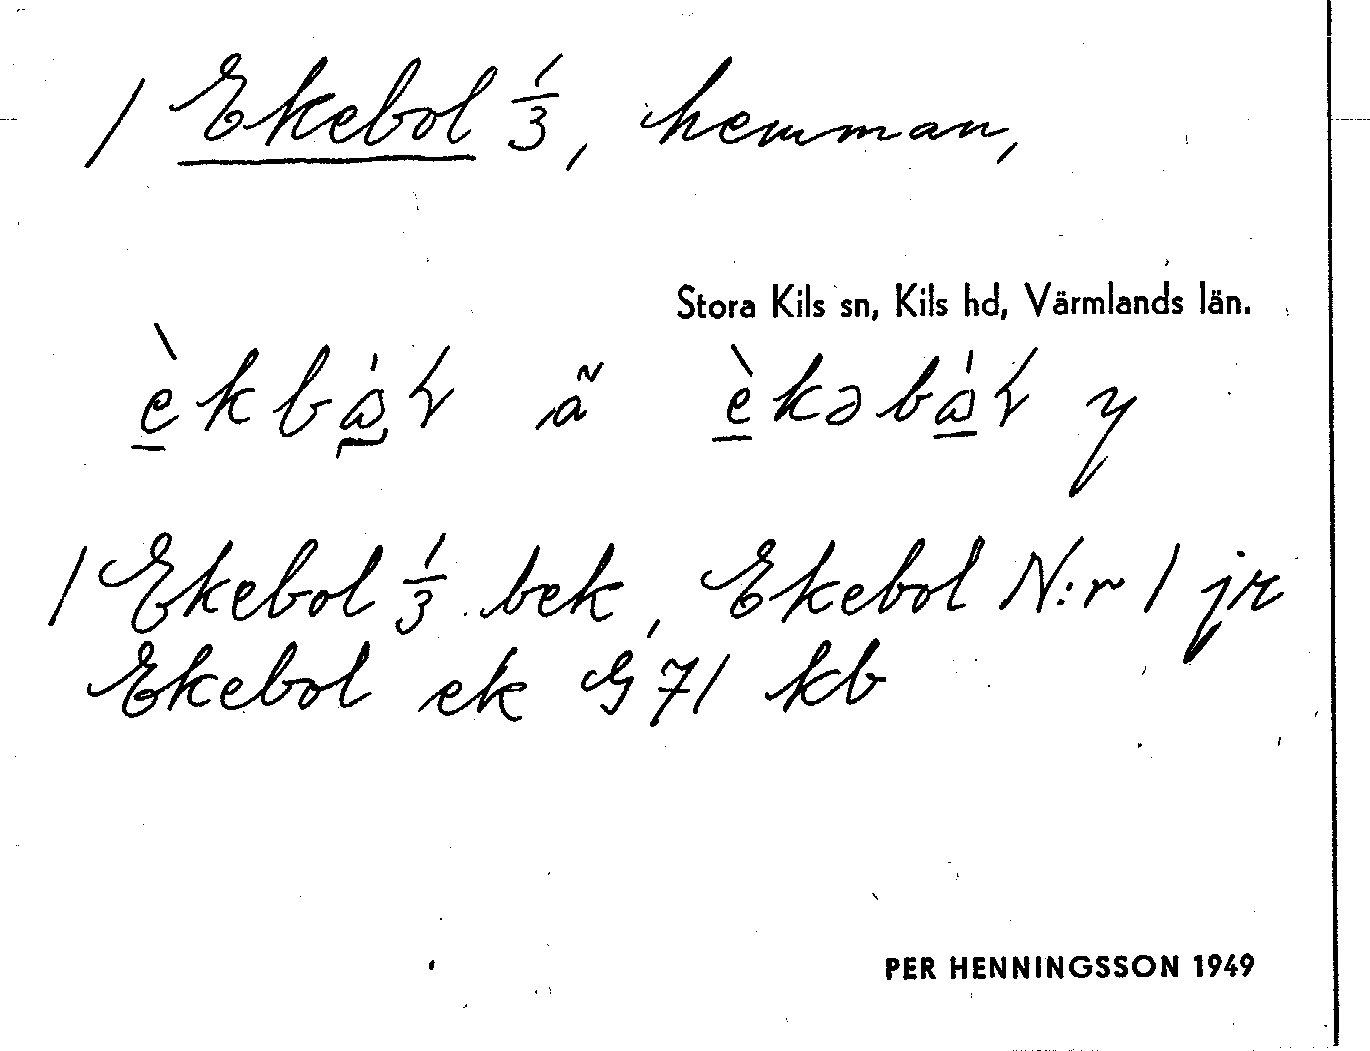 1 Ekebol 1/3, hemman,
Stora Kils sn, Kils hd, Värmlands län.
èkbå̀ɽ ã èkəbå̀ɽ y
1 Ekebol 1/3 bek, Ekebol N:r 1 jr
Ekebol ek G 71 kb
PER HENNINGSSON 1949